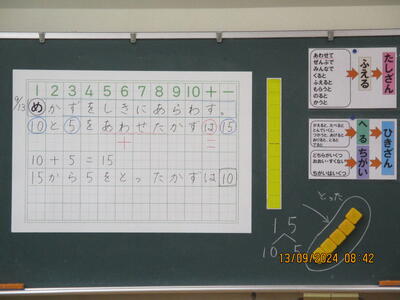 9/13
1 2 3 4 5 6 7 8 9 10 + −
め かずをしきにあらわす。
10と5をあわせたかずは15
+ =
10+5=15
15から5をとったかずは10
あわせて
ぜんぶで
みんなで
くると
ふえると
もらうと
のると
かうと
ふえる
たしざん
へる
ちがい
ひきざん
どちらがいくつ
おおい・すくない
ちがいはいくつ
とった
15
10 5
13/09/2024 08:42